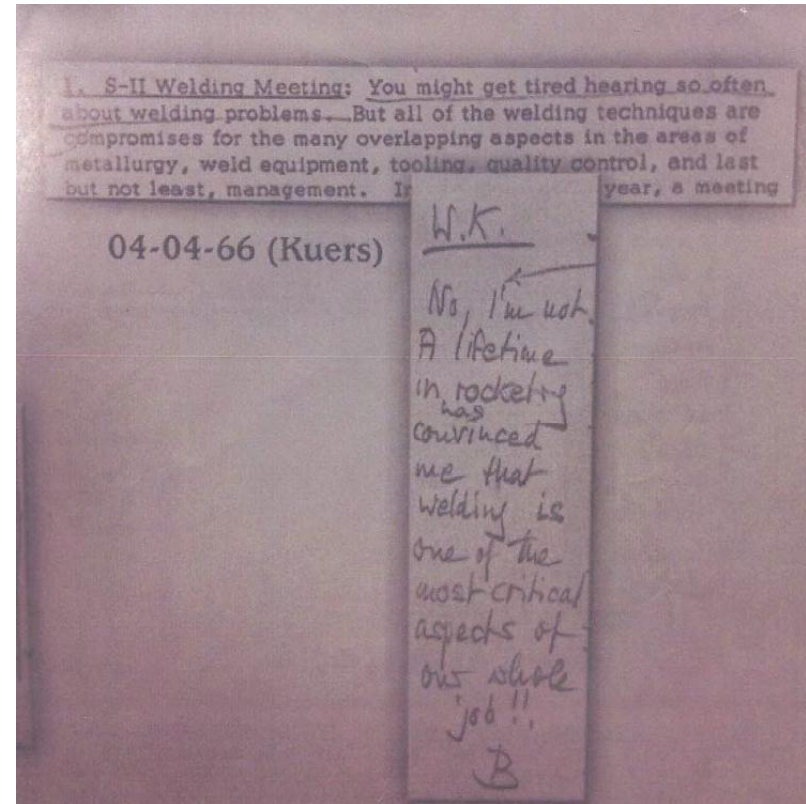 1. S-II Welding Meeting: You might get tired hearing so often
about welding problems. But all of the welding techniques are
compromises for the many overlapping aspects in the areas of
metallurgy, weld equipment, tooling, quality control, and last
but not least, management. year, a meeting
04-04-66 (Kuers)
W.K.
No, I'm not.
A lifetime
in rocketry
has
convinced
me that
welding is
one of the
most critical
aspects of
our whole
job!!
B